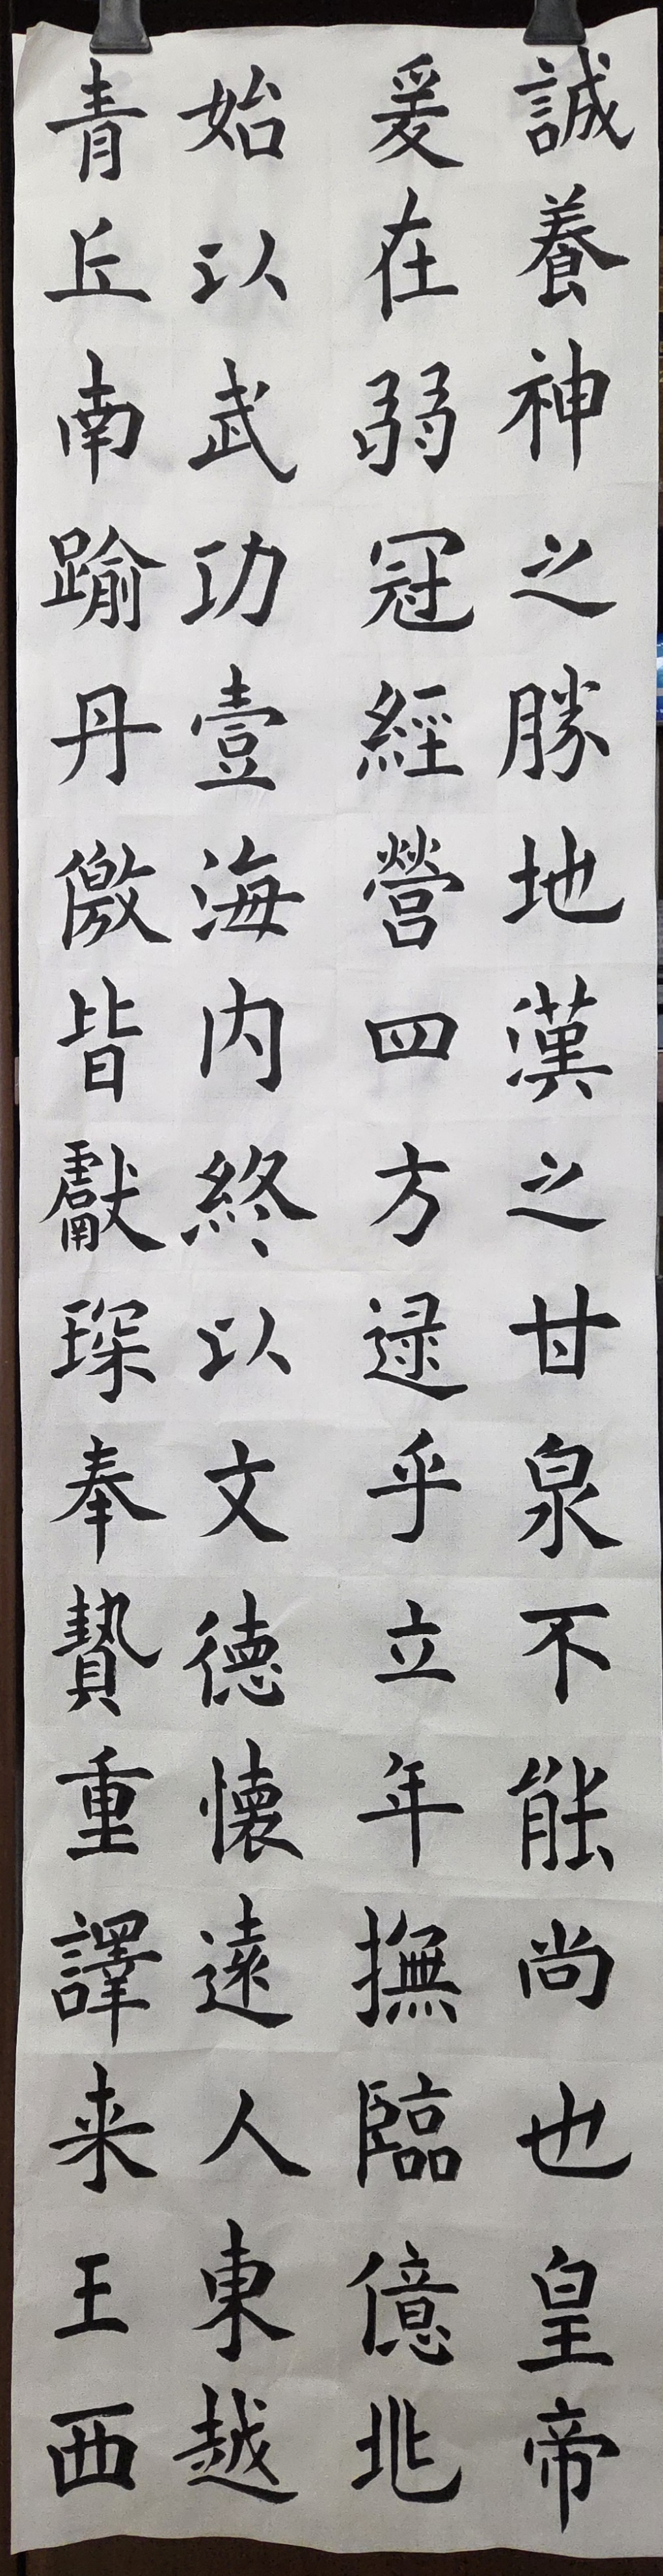 誠養神之勝地漢之甘泉不能尚也皇帝
爰在弱冠經營四方逮乎立年撫臨億兆
始以武功壹海內終以文德懷遠人東越
青丘南踰丹儌皆獻琛奉贄重譯来王西